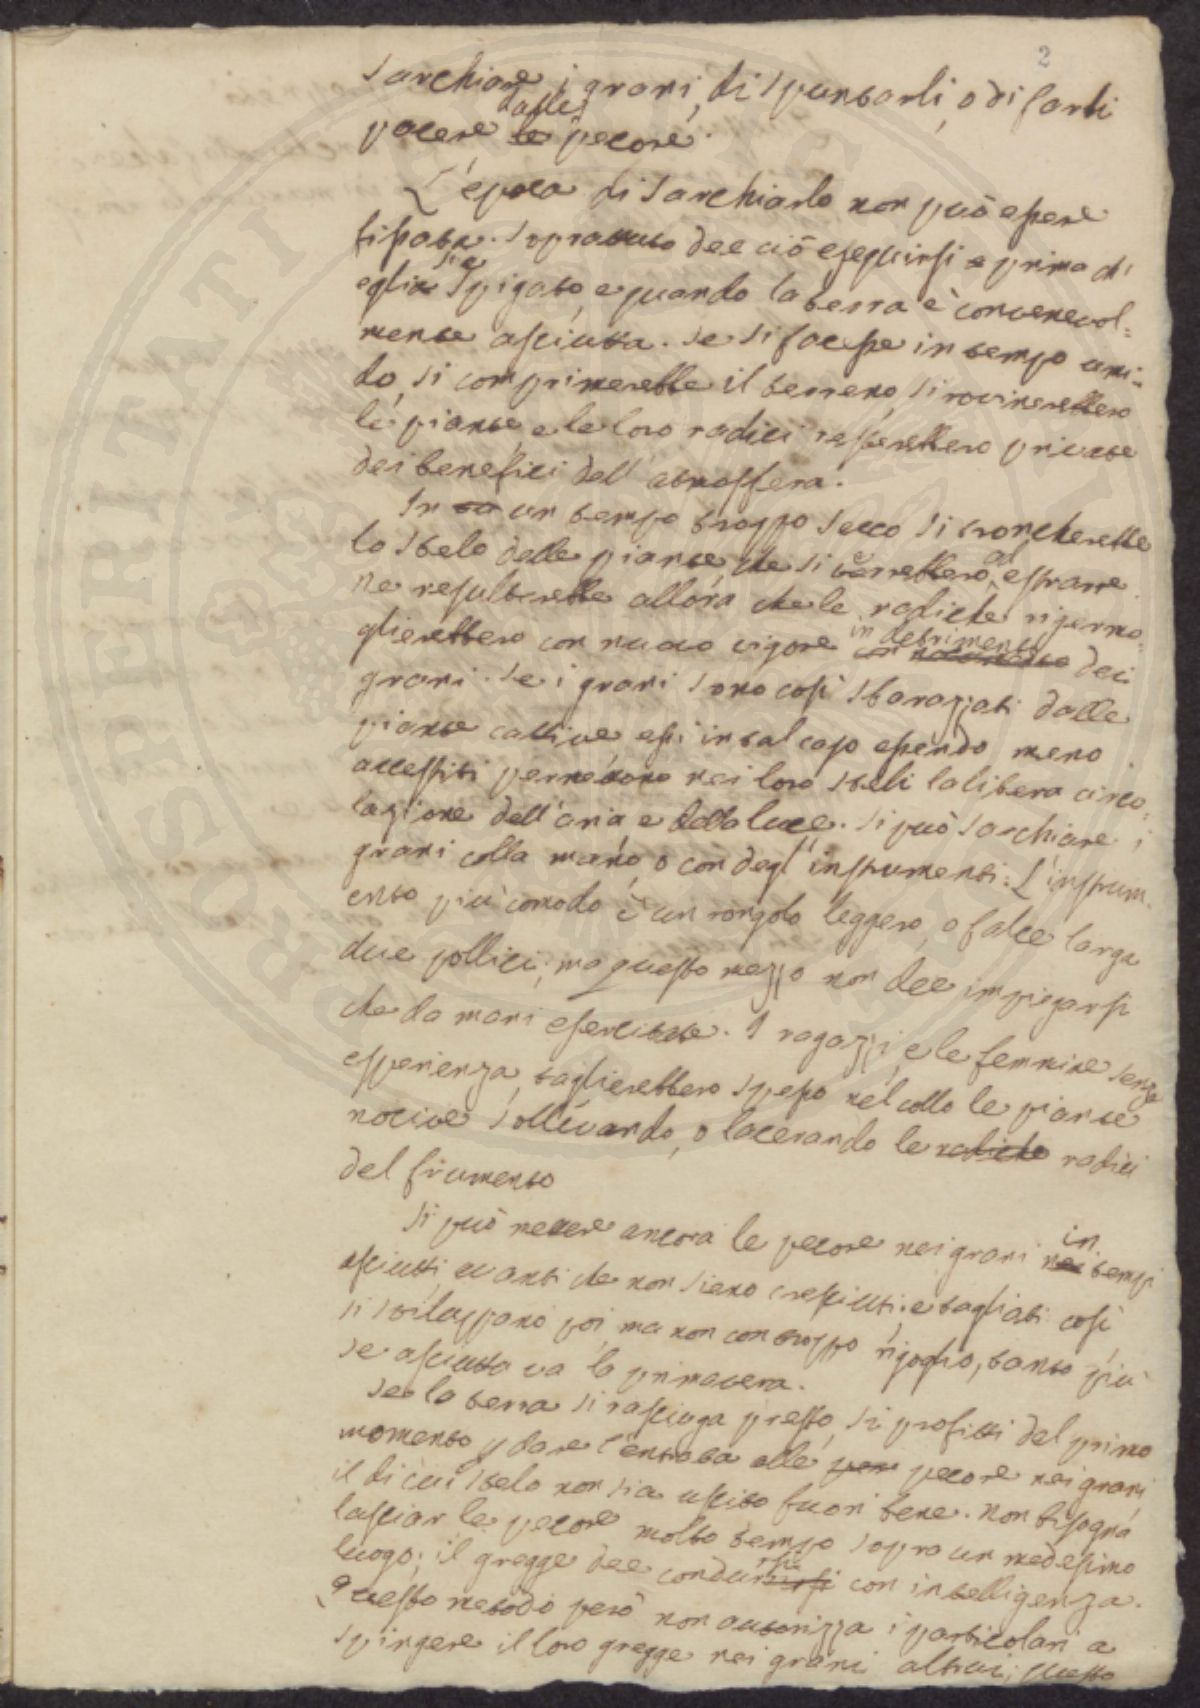 2
sarchiare i grani, di spuntarli, o di farli
pacere le dalle pecore.
L'epoca di sarchiarlo non può essere
fissata. Sopratutto dee ciò eseguirsi e prima di
eglia sia spigato, e quando la terra è convenevol=
mente asciutta. Se si facesse in tempo umi=
do, si comprimerebbe il terreno, si rovinerebbero
le piante, e le loro radici resterebbero private
dei benefici dell'atmosfera.
In un tempo troppo secco si troncherebbe
lo stelo delle piante, che si verrebbero ad estrarre
ne resulterebbe allora che le radiche rigermo=
glierebbero con nuovo vigore con in detrimento dei
grani. Se i grani sono così sbarazzati dalle
piante cattive essi in tal caso essendo meno
accestiti permettono nei loro steli la libera circo=
lazione dell'aria e della luce. Si può sarchiare i
grani colla mano, o con degl'instrumenti. L'instrum=
ento più comodo è un rongolo leggero, o falce larga
due pollici; ma questo mezzo non dee impiegarsi
che da mani esercitate. I ragazzi, e le femmine senza
esperienza, taglierebbero spesso nel collo le piante
nocive sollevando, o lacerando le radiche radici
del frumento
Si può mettere ancora le pecore nei grani nei in tempi
asciutti, avanti che non sieno cresciuti; e tagliati così
si sviluppano poi, ma non con troppo rigoglio, tanto più
se asciutta va la primavera.
Se la terra si rasciuga presto, si profitti del primo
momento p dare l'entrata alle pecore nei grani
il di cui stelo non sia uscito fuori bene. Non bisogna
lasciar le pecore molto tempo sopra un medesimo
luogo; il gregge dee condursi con intelligenza.
Questo metodo però non autorizza i particolari a
spingere il loro gregge nei grani altrui; questo
PROSPERITATI